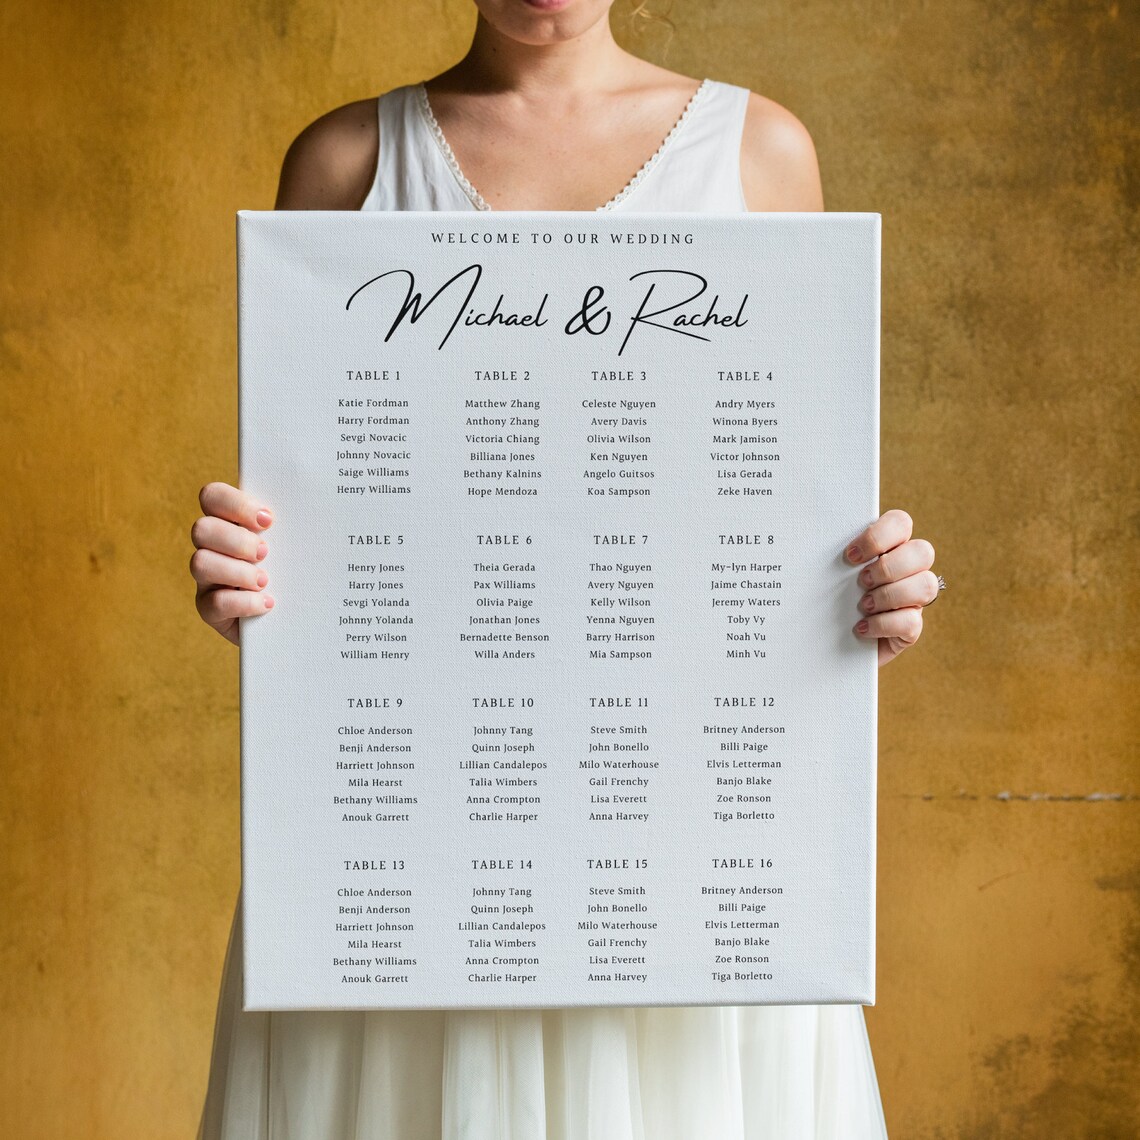 WELCOME TO OUR WEDDING
Michael & Rachel
TABLE 1
Katie Fordman
Harry Fordman
Sevgi Novacic
Johnny Novacic
Saige Williams
Henry Williams
TABLE 2
Matthew Zhang
Anthony Zhang
Victoria Chiang
Billiana Jones
Bethany Kalnins
Hope Mendoza
TABLE 3
Celeste Nguyen
Avery Davis
Olivia Wilson
Ken Nguyen
Angelo Guitsos
Koa Sampson
TABLE 4
Andry Myers
Winona Byers
Mark Jamison
Victor Johnson
Lisa Gerada
Zeke Haven
TABLE 5
Henry Jones
Harry Jones
Sevgi Yolanda
Johnny Yolanda
Perry Wilson
William Henry
TABLE 6
Theia Gerada
Pax Williams
Olivia Paige
Jonathan Jones
Bernadette Benson
Willa Anders
TABLE 7
Thao Nguyen
Avery Nguyen
Kelly Wilson
Yenna Nguyen
Barry Harrison
Mia Sampson
TABLE 8
My-lyn Harper
Jaime Chastain
Jeremy Waters
Toby Vy
Noah Vu
Minh Vu
TABLE 9
Chloe Anderson
Benji Anderson
Harriett Johnson
Mila Hearst
Bethany Williams
Anouk Garrett
TABLE 10
Johnny Tang
Quinn Joseph
Lillian Candalepos
Talia Wimbers
Anna Crompton
Charlie Harper
TABLE 11
Steve Smith
John Bonello
Milo Waterhouse
Gail Frenchy
Lisa Everett
Anna Harvey
TABLE 12
Britney Anderson
Billi Paige
Elvis Letterman
Banjo Blake
Zoe Ronson
Tiga Borletto
TABLE 13
Chloe Anderson
Benji Anderson
Harriett Johnson
Mila Hearst
Bethany Williams
Anouk Garrett
TABLE 14
Johnny Tang
Quinn Joseph
Lillian Candalepos
Talia Wimbers
Anna Crompton
Charlie Harper
TABLE 15
Steve Smith
John Bonello
Milo Waterhouse
Gail Frenchy
Lisa Everett
Anna Harvey
TABLE 16
Britney Anderson
Billi Paige
Elvis Letterman
Banjo Blake
Zoe Ronson
Tiga Borletto